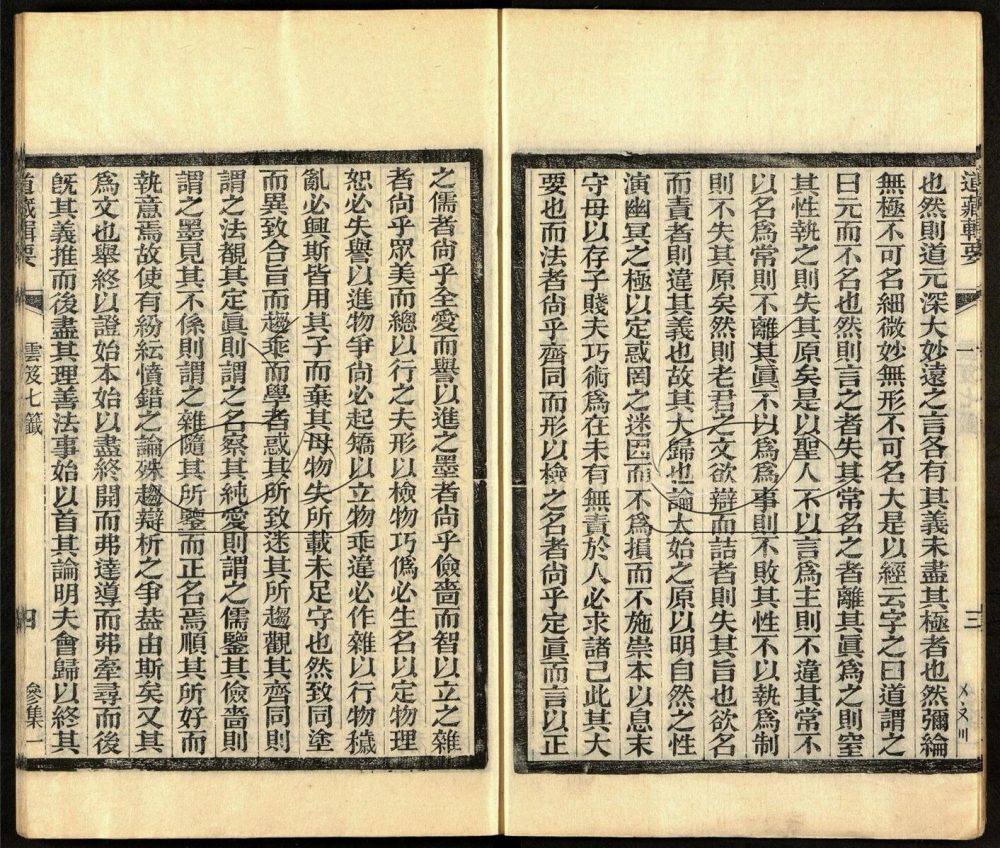 道藏輯要
三
也然則道元深大妙遠之言各有其義未盡其極者也然彌綸
無極不可名細微妙無形不可名大是以經云字之曰道謂之
曰元而不名也然則言之者失其常名之者離其眞為之則窒
其性執之則失其原矣是以聖人不以言為主則不違其常不
以名為常則不離其眞不以為為事則不敗其性不以執為制
則不失其原矣然則老君之文欲辯而詰者則失其旨也欲名
而責者則違其義也故其大歸也論太始之原以明自然之性
演幽冥之極以定惑罔之迷因而不為損而不施崇本以息末
守母以存子賤夫巧術為在未有無責於人必求諸己此其大
要也而法者尚乎齊同而形以檢之名者尚乎定眞而言以正
之儒者尚乎全愛而譽以進之墨者尚乎儉嗇而智以立之雜
者尚乎眾美而總以行之夫形以檢物巧僞必生名以定物理
恕必失譽以進物爭尚必起矯以立物乖違必作雜以行物穢
亂必興斯皆用其子而棄其母物失所載未足守也然致同塗
而異致合旨而趨乖而學者惑其所致迷其所趨觀其齊同則
謂之法覩其定眞則謂之名察其純愛則謂之儒鑒其儉嗇則
謂之墨見其不係則謂之雜隨其所鑒而正名焉順其所好而
執意焉故使有紛紜憤錯之論殊趨辯析之爭葢由斯矣又其
為文也舉終以證始本始以盡終開而弗達導而弗牽尋而後
旣其義推而後盡其理善法事始以首其論明夫會歸以終其
道藏輯要
雲笈七籤
四
參集一